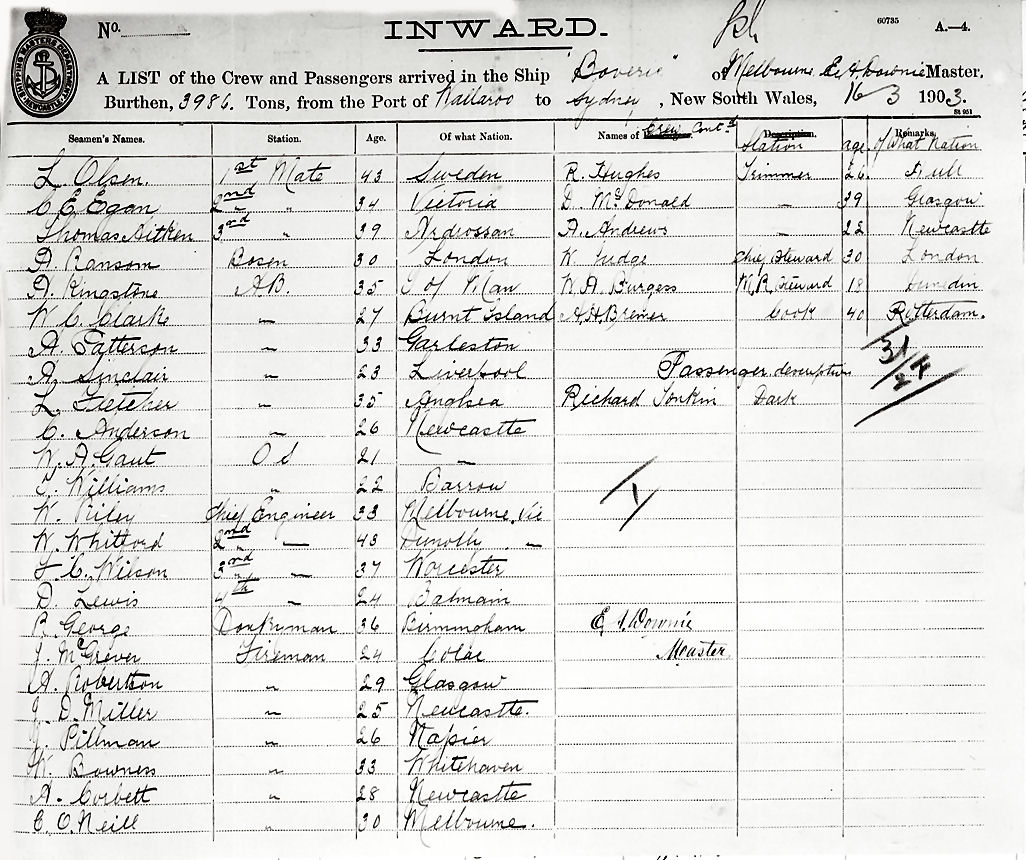 No.
INWARD.
60735
A.—4.
A LIST of the Crew and Passengers arrived in the Ship "Boveric" of Melbourne E. A. Downie Master,
Burthen, 3986. Tons, from the Port of Wallaroo to Sydney, New South Wales, 16 3 1903.
St 951
Seamen's Names. Station. Age. Of what Nation. Names of Crew Cont^d Station age Of What Nation
Description. Remarks.
L. Olsen. 1st Mate 43 Sweden R. Hughes Trimmer 26 Hull
C E Egan 2nd " 34 Victoria D. McDonald — 39 Glasgow
Thomas Aitken 3rd " 39 Ardrossan A. Andrews — 22 Newcastle
A. Ransom Bosen 30 London W. Judge Chief Steward 30 London
A. Kingstone AB. 35 I of Man W. A. Burgess M. R. Steward 18 Dunedin
W. C. Clarke — 27 Burnt Island A. H. Bremer Cook 40 Rotterdam.
A. Patterson — 33 Garleston
A. Sinclair — 23 Liverpool Passenger description
L. Fletcher — 35 Anglsea Richard Jonkin Dark
31/24
C. Anderson — 26 Newcastle
W. A. Gaut Od 21 —
C. Williams " 22 Barrow
1
W. Riley Chief Engineer 33 Melbourne, Vic
W. Whitford 2nd " — 43 —
F. C. Wilson 3rd " — 37 Worcester
D. Lewis 4th — 24 Balmain
R. George Donkeyman 36 Birmingham E. A. Downie
J. McGrever Fireman 24 Colac Master
A. Robertson " 29 Glasgow
J. D. Miller " 25 Newcastle.
J. Pillman " 26 Napier
W. Bowness " 33 Whitehaven
A. Corbett " 28 Newcastle
C. O'Neill " 30 Melbourne.